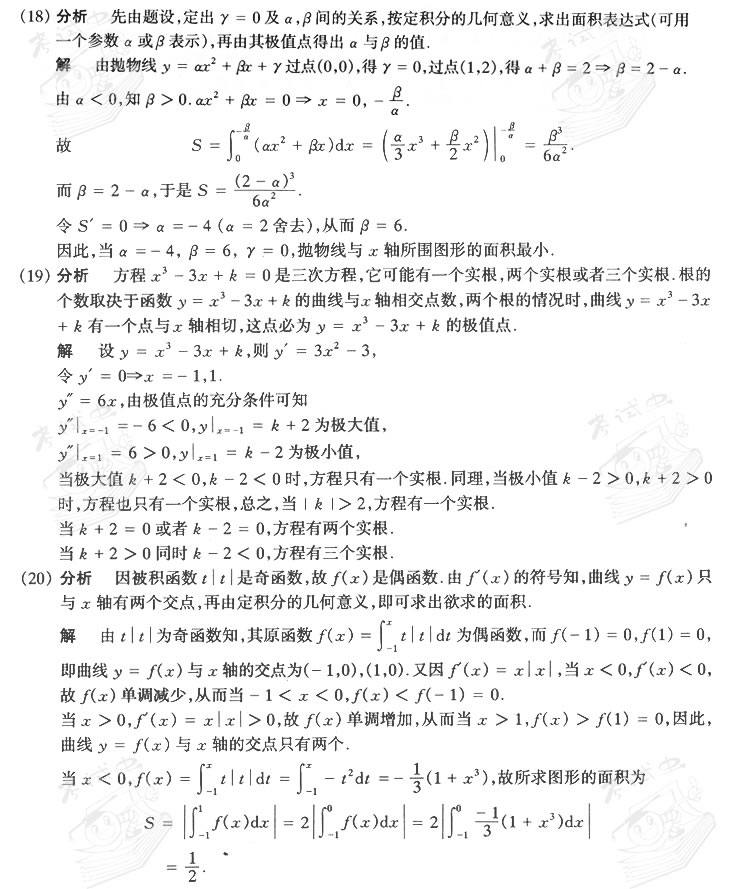 (18) 分析 先由题设,定出 γ = 0 及 α,β 间的关系,按定积分的几何意义,求出面积表达式(可用
一个参数 α 或 β 表示),再由其极值点得出 α 与 β 的值.
解 由抛物线 y = αx² + βx + γ 过点(0,0),得 γ = 0,过点(1,2),得 α + β = 2 ⇒ β = 2 − α.
由 α < 0,知 β > 0. αx² + βx = 0 ⇒ x = 0, − β/α.
故 S = ∫₀^(−β/α) (αx² + βx)dx = (α/3 x³ + β/2 x²)|₀^(−β/α) = β³/6α².
而 β = 2 − α,于是 S = (2 − α)³/6α².
令 S′ = 0 ⇒ α = − 4 (α = 2 舍去),从而 β = 6.
因此,当 α = − 4, β = 6, γ = 0,抛物线与 x 轴所围图形的面积最小.
(19) 分析 方程 x³ − 3x + k = 0 是三次方程,它可能有一个实根,两个实根或者三个实根.根的
个数取决于函数 y = x³ − 3x + k 的曲线与x 轴相交点数,两个根的情况时,曲线 y = x³ − 3x
+ k 有一个点与 x 轴相切,这点必为 y = x³ − 3x + k 的极值点.
解 设 y = x³ − 3x + k,则 y′ = 3x² − 3,
令 y′ = 0⇒x = − 1,1.
y″ = 6x,由极值点的充分条件可知
y″|ₓ₌₋₁ = − 6 < 0,y|ₓ₌₋₁ = k + 2 为极大值,
y″|ₓ₌₁ = 6 > 0,y|ₓ₌₁ = k − 2 为极小值,
当极大值 k + 2 < 0,k − 2 < 0 时,方程只有一个实根.同理,当极小值 k − 2 > 0,k + 2 > 0
时,方程也只有一个实根,总之,当 | k |> 2,方程有一个实根.
当 k + 2 = 0 或者 k − 2 = 0,方程有两个实根.
当 k + 2 > 0 同时 k − 2 < 0,方程有三个实根.
(20) 分析 因被积函数 t | t | 是奇函数,故 f(x) 是偶函数.由 f′(x) 的符号知,曲线 y = f(x) 只
与 x 轴有两个交点,再由定积分的几何意义,即可求出欲求的面积.
解 由 t | t | 为奇函数知,其原函数 f(x) = ∫₋₁ˣ t | t | dt 为偶函数,而 f(− 1) = 0,f(1) = 0,
即曲线 y = f(x) 与 x 轴的交点为(− 1,0),(1,0).又因 f′(x) = x| x | ,当 x < 0,f′(x) < 0,
故 f(x) 单调减少,从而当 − 1 < x < 0,f(x) < f(− 1) = 0.
当 x > 0,f′(x) = x | x | > 0,故 f(x) 单调增加,从而当 x > 1,f(x) > f(1) = 0,因此,
曲线 y = f(x) 与 x 轴的交点只有两个.
当 x < 0,f(x) = ∫₋₁ˣ t | t | dt = ∫₋₁ˣ − t²dt = − 1/3(1 + x³),故所求图形的面积为
S = |∫₋₁¹ f(x)dx| = 2|∫₋₁⁰ f(x)dx| = 2|∫₋₁⁰ −1/3(1 + x³)dx|
= 1/2.